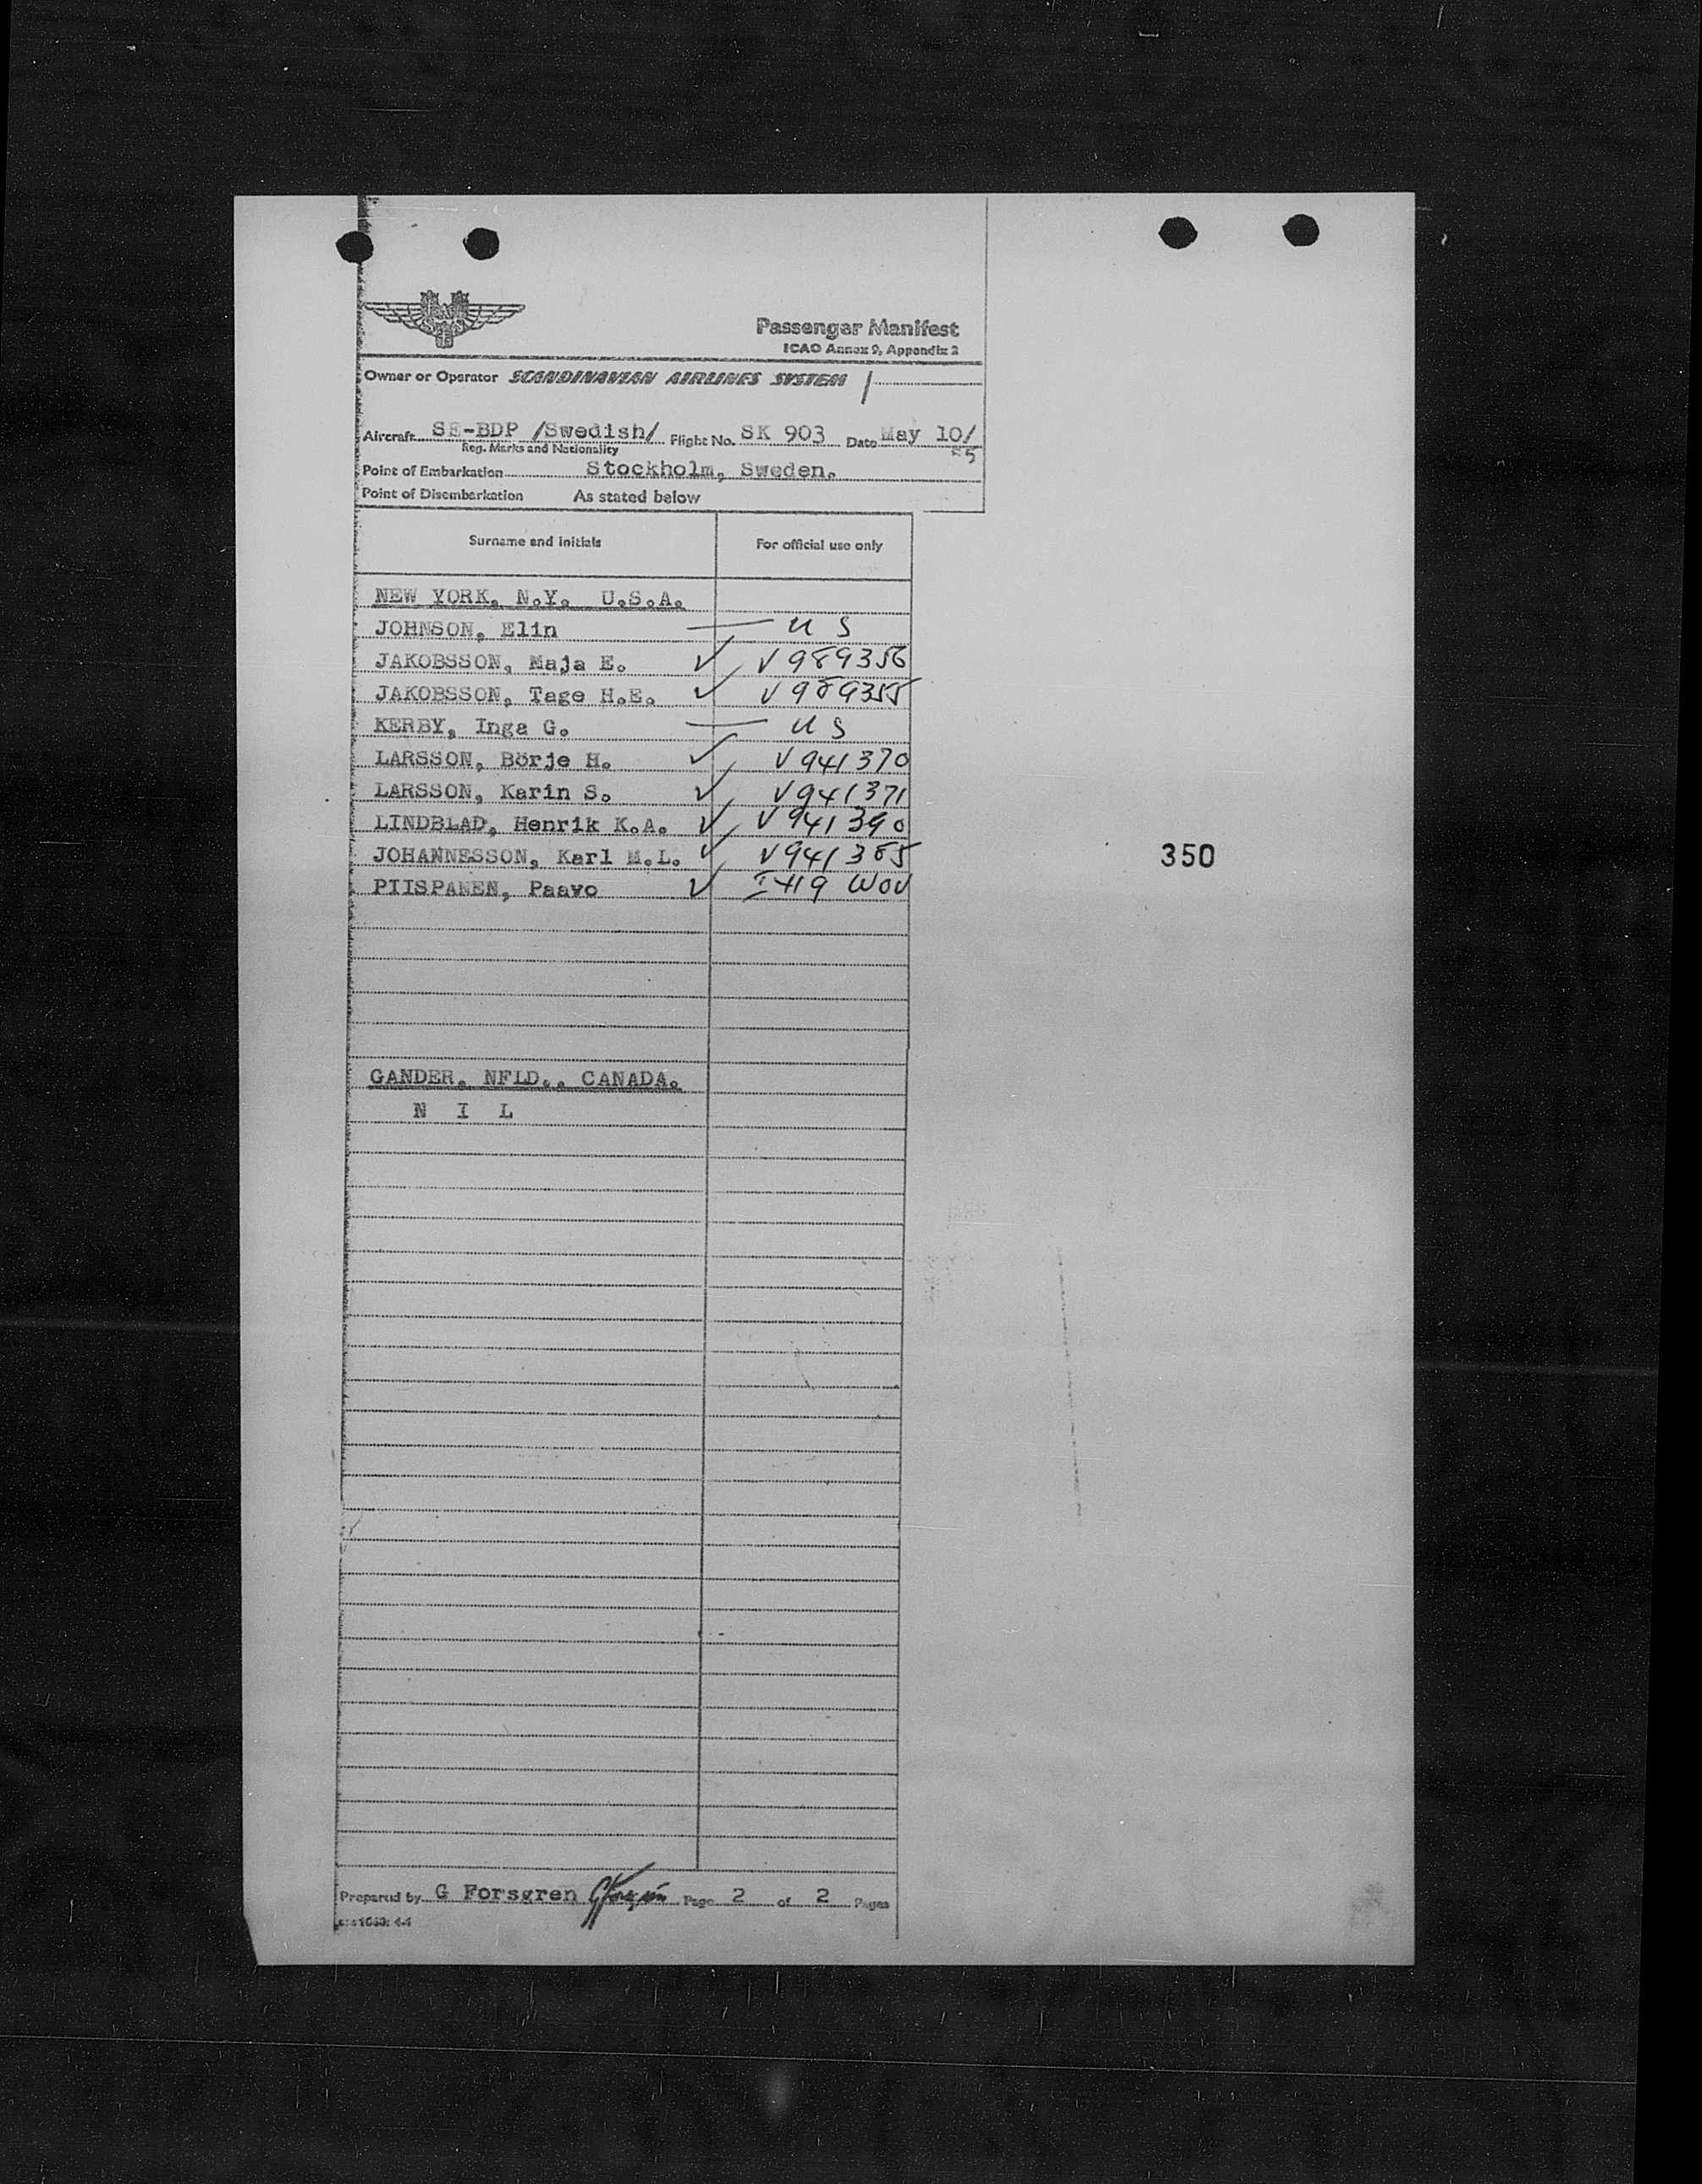 SAS
Passenger Manifest
ICAO Annex 9, Appendix 2
Owner or Operator SCANDINAVIAN AIRLINES SYSTEM /
Aircraft SE-BDP /Swedish/ Flight No. SK 903 Date May 10/
55
Reg. Marks and Nationality
Point of Embarkation Stockholm, Sweden.
Point of Disembarkation As stated below
Surname and initials For official use only
NEW YORK, N.Y. U.S.A.
JOHNSON, Elin — U S
JAKOBSSON, Maja E. ✓ V989356
JAKOBSSON, Tage H.E. ✓ V989355
KERBY, Inga G. — U S
LARSSON, Börje H. ✓ V941370
LARSSON, Karin S. ✓ V941371
LINDBLAD, Henrik K.A. ✓ V941390
JOHANNESSON, Karl M.L. ✓ V941385
350
PIISPANEN, Paavo ✓ I-419 WOV
GANDER, NFLD., CANADA.
N I L
Prepared by G Forsgren GForsgren Page 2 of 2 Pages